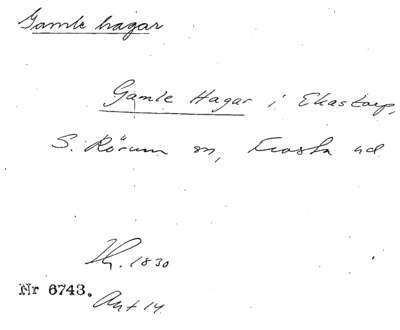 Gamle hagar
Gamle Hagar i Ekastorp,
S. Rörum sn, Frosta hd
Lh. 1830
Nr 6743.
Akt 14.